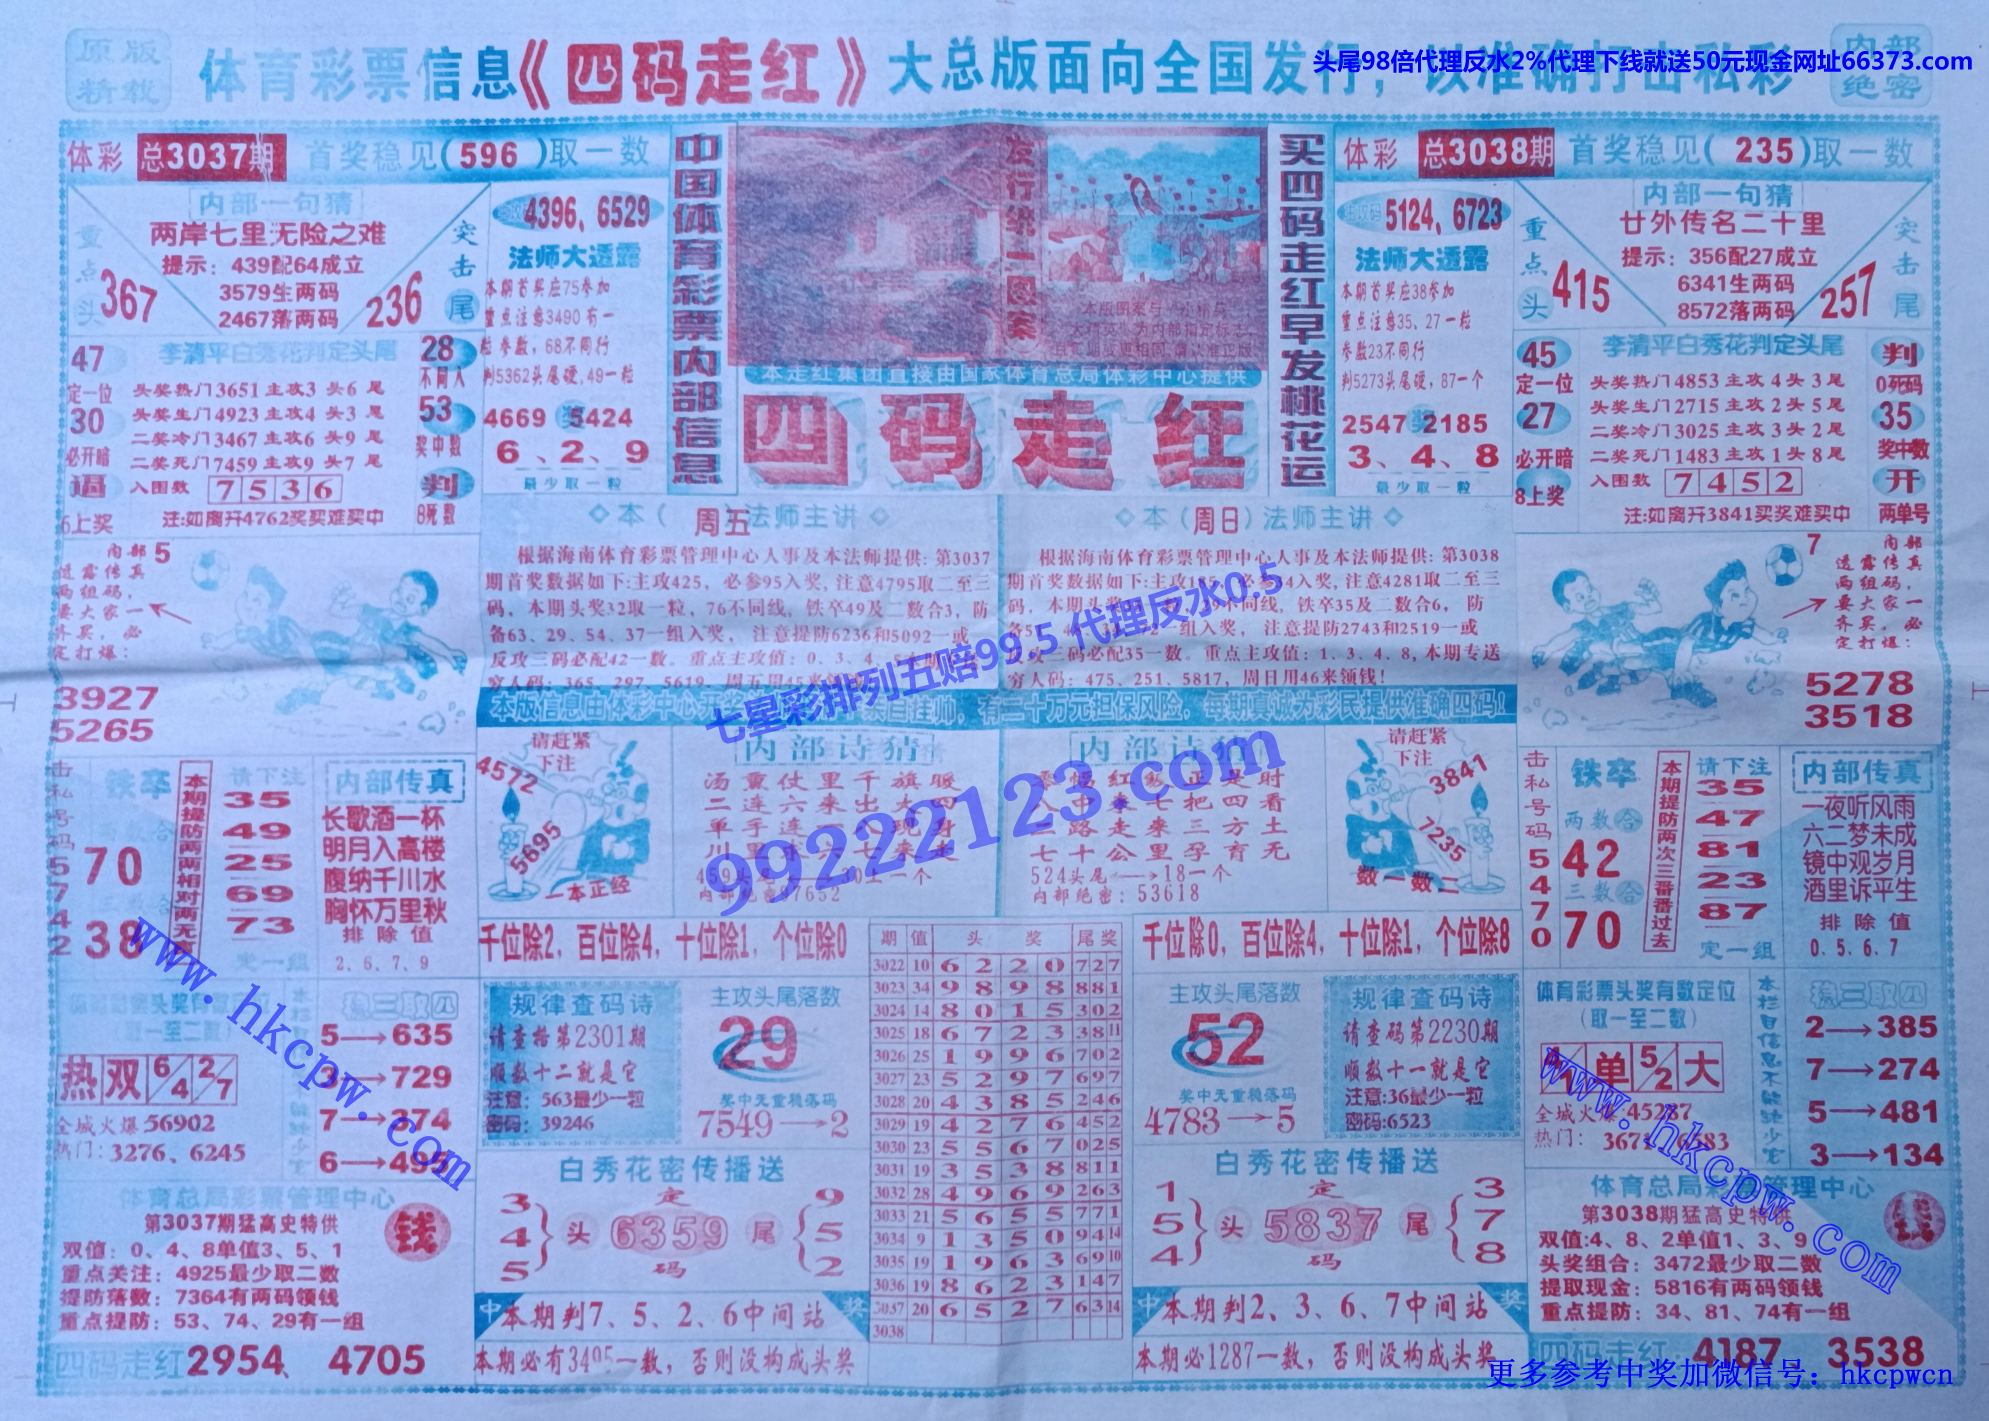 原版
精载
体育彩票信息《四码走红》大总版面向全国发行，以准确打击私彩
内部
绝密
头尾98倍代理反水2%代理下线就送50元现金网址66373.com
体彩 总3037期 首奖稳见(596)取一数
内部一句猜
两岸七里无险之难
提示：439配64成立
3579生两码
2467落两码
重点头
367
突击尾
236
4396，6529
法师大透露
本期首奖应75参加
重点注意3490有一
粒参数，68不同行
判5362头尾硬,49一粒
4669 奖 5424
6、2、9
最少取一粒
47
定一位
30
必开暗
6上奖
李清平白秀花判定头尾
头奖热门3651主攻3头6尾
头奖生门4923主攻4头3尾
二奖冷门3467主攻6头9尾
二奖死门7459主攻9头7尾
入围数 7536
注:如离开4762奖买难买中
28
不同人
53
奖中数
判
8死数
中国体育彩票内部信息
发行统一图案
本走红集团直接由国家体育总局体彩中心提供
四码走红
买四码走红早发桃花运
体彩 总3038期 首奖稳见(235)取一数
5124，6723
法师大透露
本期首奖应38参加
重点注意35、27一粒
参数23不同行
判5273头尾硬，87一个
2547 奖 2185
3、4、8
最少取一粒
内部一句猜
廿外传名二十里
提示：356配27成立
6341生两码
8572落两码
重点头
415
突击尾
257
45
定一位
27
必开暗
8上奖
李清平白秀花判定头尾
头奖热门4853主攻4头3尾
头奖生门2715主攻2头5尾
二奖冷门3025主攻3头2尾
二奖死门1483主攻1头8尾
入围数 7452
注:如离开3841买奖难买中
判
0死码
35
奖中数
开
两单号
内部
透露传真
两组码，
要大家一
齐买，必
定打爆：
5
3927
5265
◇本（周五）法师主讲◇
根据海南体育彩票管理中心人事及本法师提供：第3037
期首奖数据如下:主攻425，必参95入奖，注意4795取二至三
码，本期头奖32取一粒，76不同线，铁卒49及二数合3，防
备63、29、54、37一组入奖，注意提防6236和5092一或
反攻三码必配42一数。重点主攻值：0、3、4、5
穷人码：365、297、5619，周五用45来
◇本（周日）法师主讲◇
根据海南体育彩票管理中心人事及本法师提供：第3038
期首奖数据如下:主攻185，必参34入奖，注意4281取二至三
码，本期头奖 不同线，铁卒35及二数合6，防
一组入奖，注意提防2743和2519一或
三码必配35一数。重点主攻值：1、3、4、8，本期专送
穷人码：475、251、5817，周日用46来领钱！
7
内部
透露传真
两组码，
要大家一
齐买，必
定打爆：
5278
3518
七星彩排列五赔99.5 代理反水0.5
99222123.com
本版信息由体彩中心 有二十万元担保风险，每期真诚为彩民提供准确四码！
击私号码 5742
铁卒
两数合
70
三数合
38
本期提防两两相对两无
请下注
35
49
25
69
73
定一组
内部传真
长歌酒一杯
明月入高楼
腹纳千川水
胸怀万里秋
排除值
2、6、7、9
请赶紧
下注
4572
5695
一本正经
内部诗猜
汤熏仗里千旗骏
二连六来出
单手连
川里
内部绝密97652
内部诗猜
红 正是时
七把四看
路走来三方土
七十公里孕育无
524头尾——→18一个
内部绝密：53618
请赶紧
下注
3841
7235
数一数二
击私号码 5470
铁卒
两数合
42
三数合
70
本期提防两次三番番过去
请下注
35
47
81
23
87
定一组
内部传真
一夜听风雨
六二梦未成
镜中观岁月
酒里诉平生
排除值
0、5、6、7
千位除2，百位除4，十位除1，个位除0
期 值 头奖 尾奖
3022 10 6 2 2 0 7 2 7
3023 34 9 8 9 8 8 8 1
3024 14 8 0 1 5 3 0 2
3025 18 6 7 2 3 3 8 11
3026 25 1 9 9 6 7 0 2
3027 23 5 2 9 7 6 9 7
3028 20 4 3 8 5 2 4 6
3029 19 4 2 7 6 4 5 2
3030 23 5 5 6 7 0 2 5
3031 19 3 5 3 8 8 1 1
3032 28 4 9 6 9 2 6 3
3033 21 5 6 5 5 7 7 1
3034 9 1 3 5 0 9 4 14
3035 19 1 9 6 3 6 9 10
3036 19 8 6 2 3 1 4 7
3037 20 6 5 2 7 6 3 14
3038
千位除0，百位除4，十位除1，个位除8
头奖
（取一至二数）
热 双 6/4 2/7
全城火爆56902
热门：3276、6245
稳三取四
5→635
3→729
7→274
6→495
规律查码诗
请查格第2301期
顺数十二就是它
注意：563最少一粒
密码：39246
主攻头尾落数
29
奖中无重稳落码
7549→2
主攻头尾落数
52
奖中无重稳落码
4783→5
规律查码诗
请查码第2230期
顺数十一就是它
注意:36最少一粒
密码:6523
体育彩票头奖有数定位
（取一至二数）
单 5/2 大
全城火爆45287
热门：
本栏目信息不能缺少它
稳三取四
2→385
7→274
5→481
3→134
体育总局彩票管理中心
第3037期猛高史特供
双值：0、4、8单值3、5、1
重点关注：4925最少取二数
提防落数：7364有两码领钱
重点提防：53、74、29有一组
钱
四码走红2954、4705
白秀花密传播送
3
4
5
头
定
6359
码
尾
9
5
2
中 本期判7、5、2、6中间站 奖
本期必有3495一数，否则没构成头奖
白秀花密传播送
1
5
4
头
定
5837
码
尾
3
7
8
中 本期判2、3、6、7中间站 奖
本期必1287一数，否则没构成头奖
体育总局彩票管理中心
第3038期猛高史特供
双值:4、8、2单值1、3、9
头奖组合：3472最少取二数
提取现金：5816有两码领钱
重点提防：34、81、74有一组
钱
四码走红：4187、3538
www.hkcpw.com
www.hkcpw.com
更多参考中奖加微信号：hkcpwcn